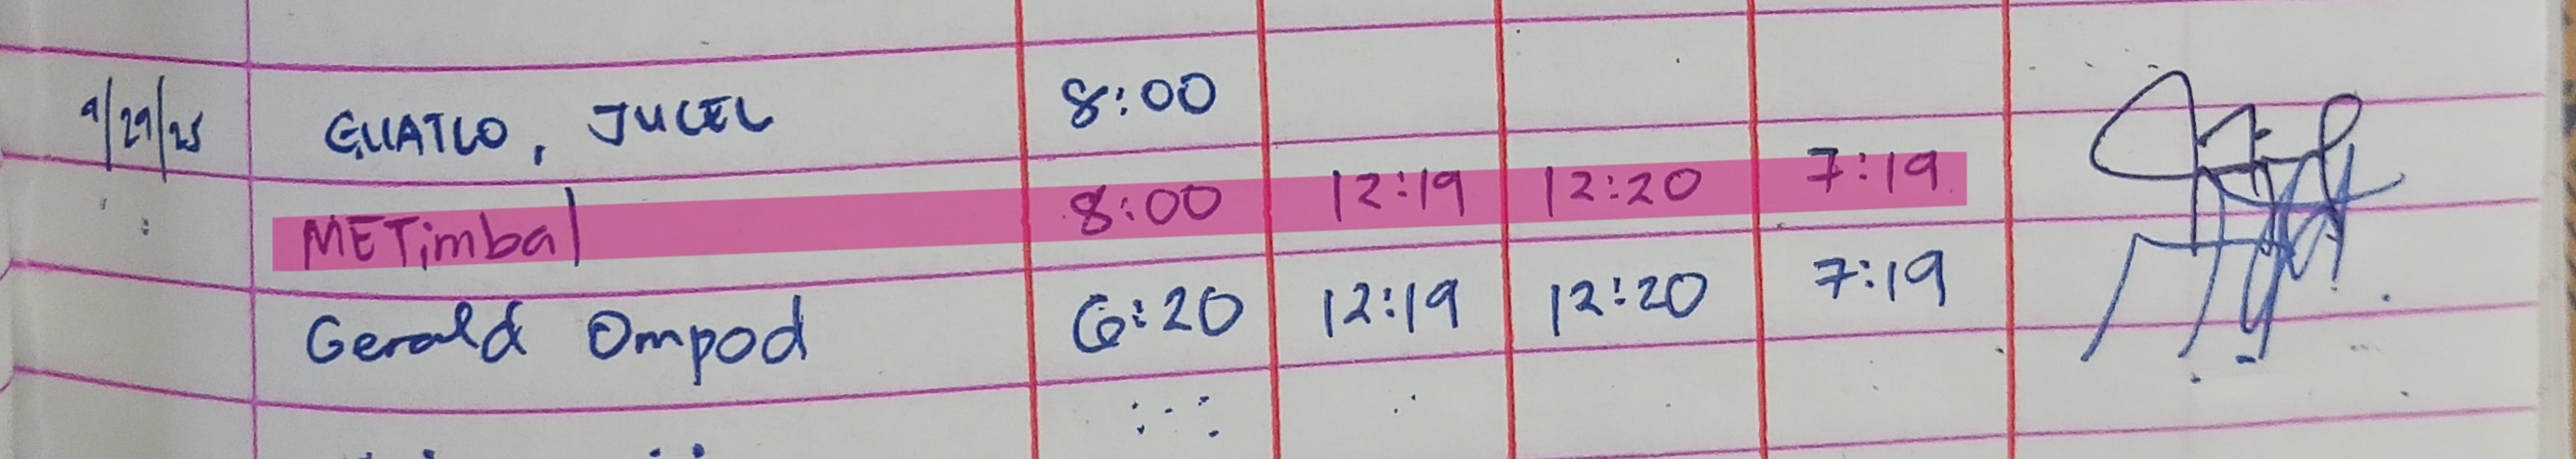 9/29/25 GUATLO, JUCEL 8:00
METimbal 8:00 12:19 12:20 7:19
Gerald Ompod 6:20 12:19 12:20 7:19